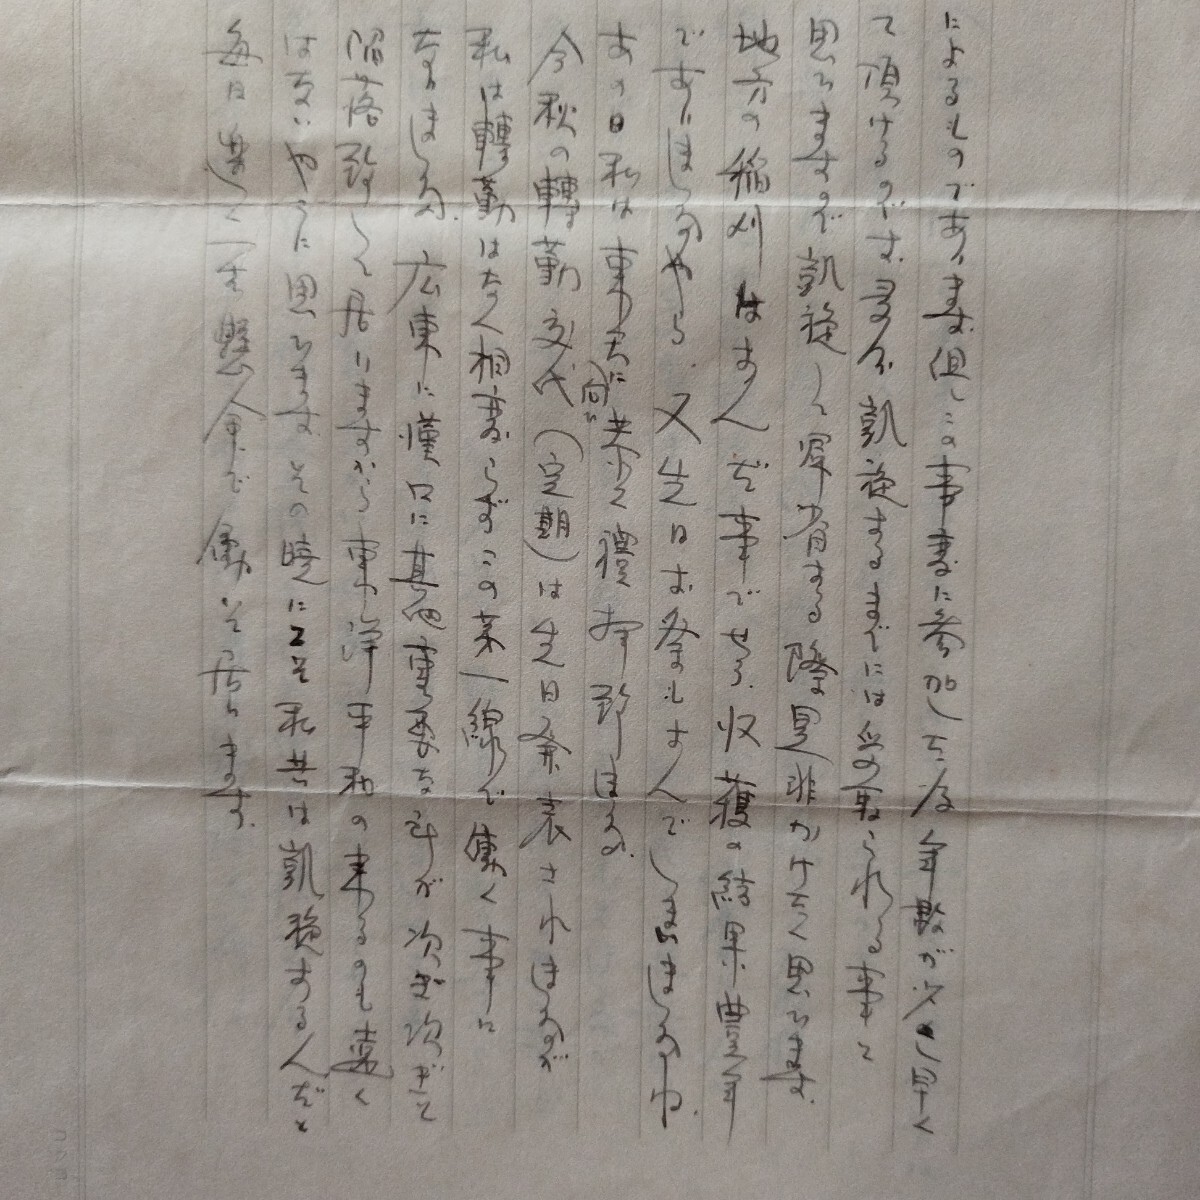 によるものであります。但しこの事変に参加した為年数が少し早く
て頂けるのです。多分凱旋するまでには受取られる事と
思ひますので凱旋して帰省する際是非かけたく思ひます。
地方の稲刈はすんだ事でせう。収穫の結果豊年
でありましたやら。又先日お祭もすんでしまひましたね。
あの日私は東方に向ひ遥々禮拝致しました。
今秋の轉勤交代(定期)は先日発表されましたが
私は轉勤はなく相変らずこの第一線で働く事に
なりました。広東に漢口に其他重要な所が次ぎ次ぎと
陥落致して居りますから東洋平和の来るのも遠く
はないやうに思ひます。その暁にこそ私共は凱旋する人だと
毎日楽しく一生懸命で働いて居ります。